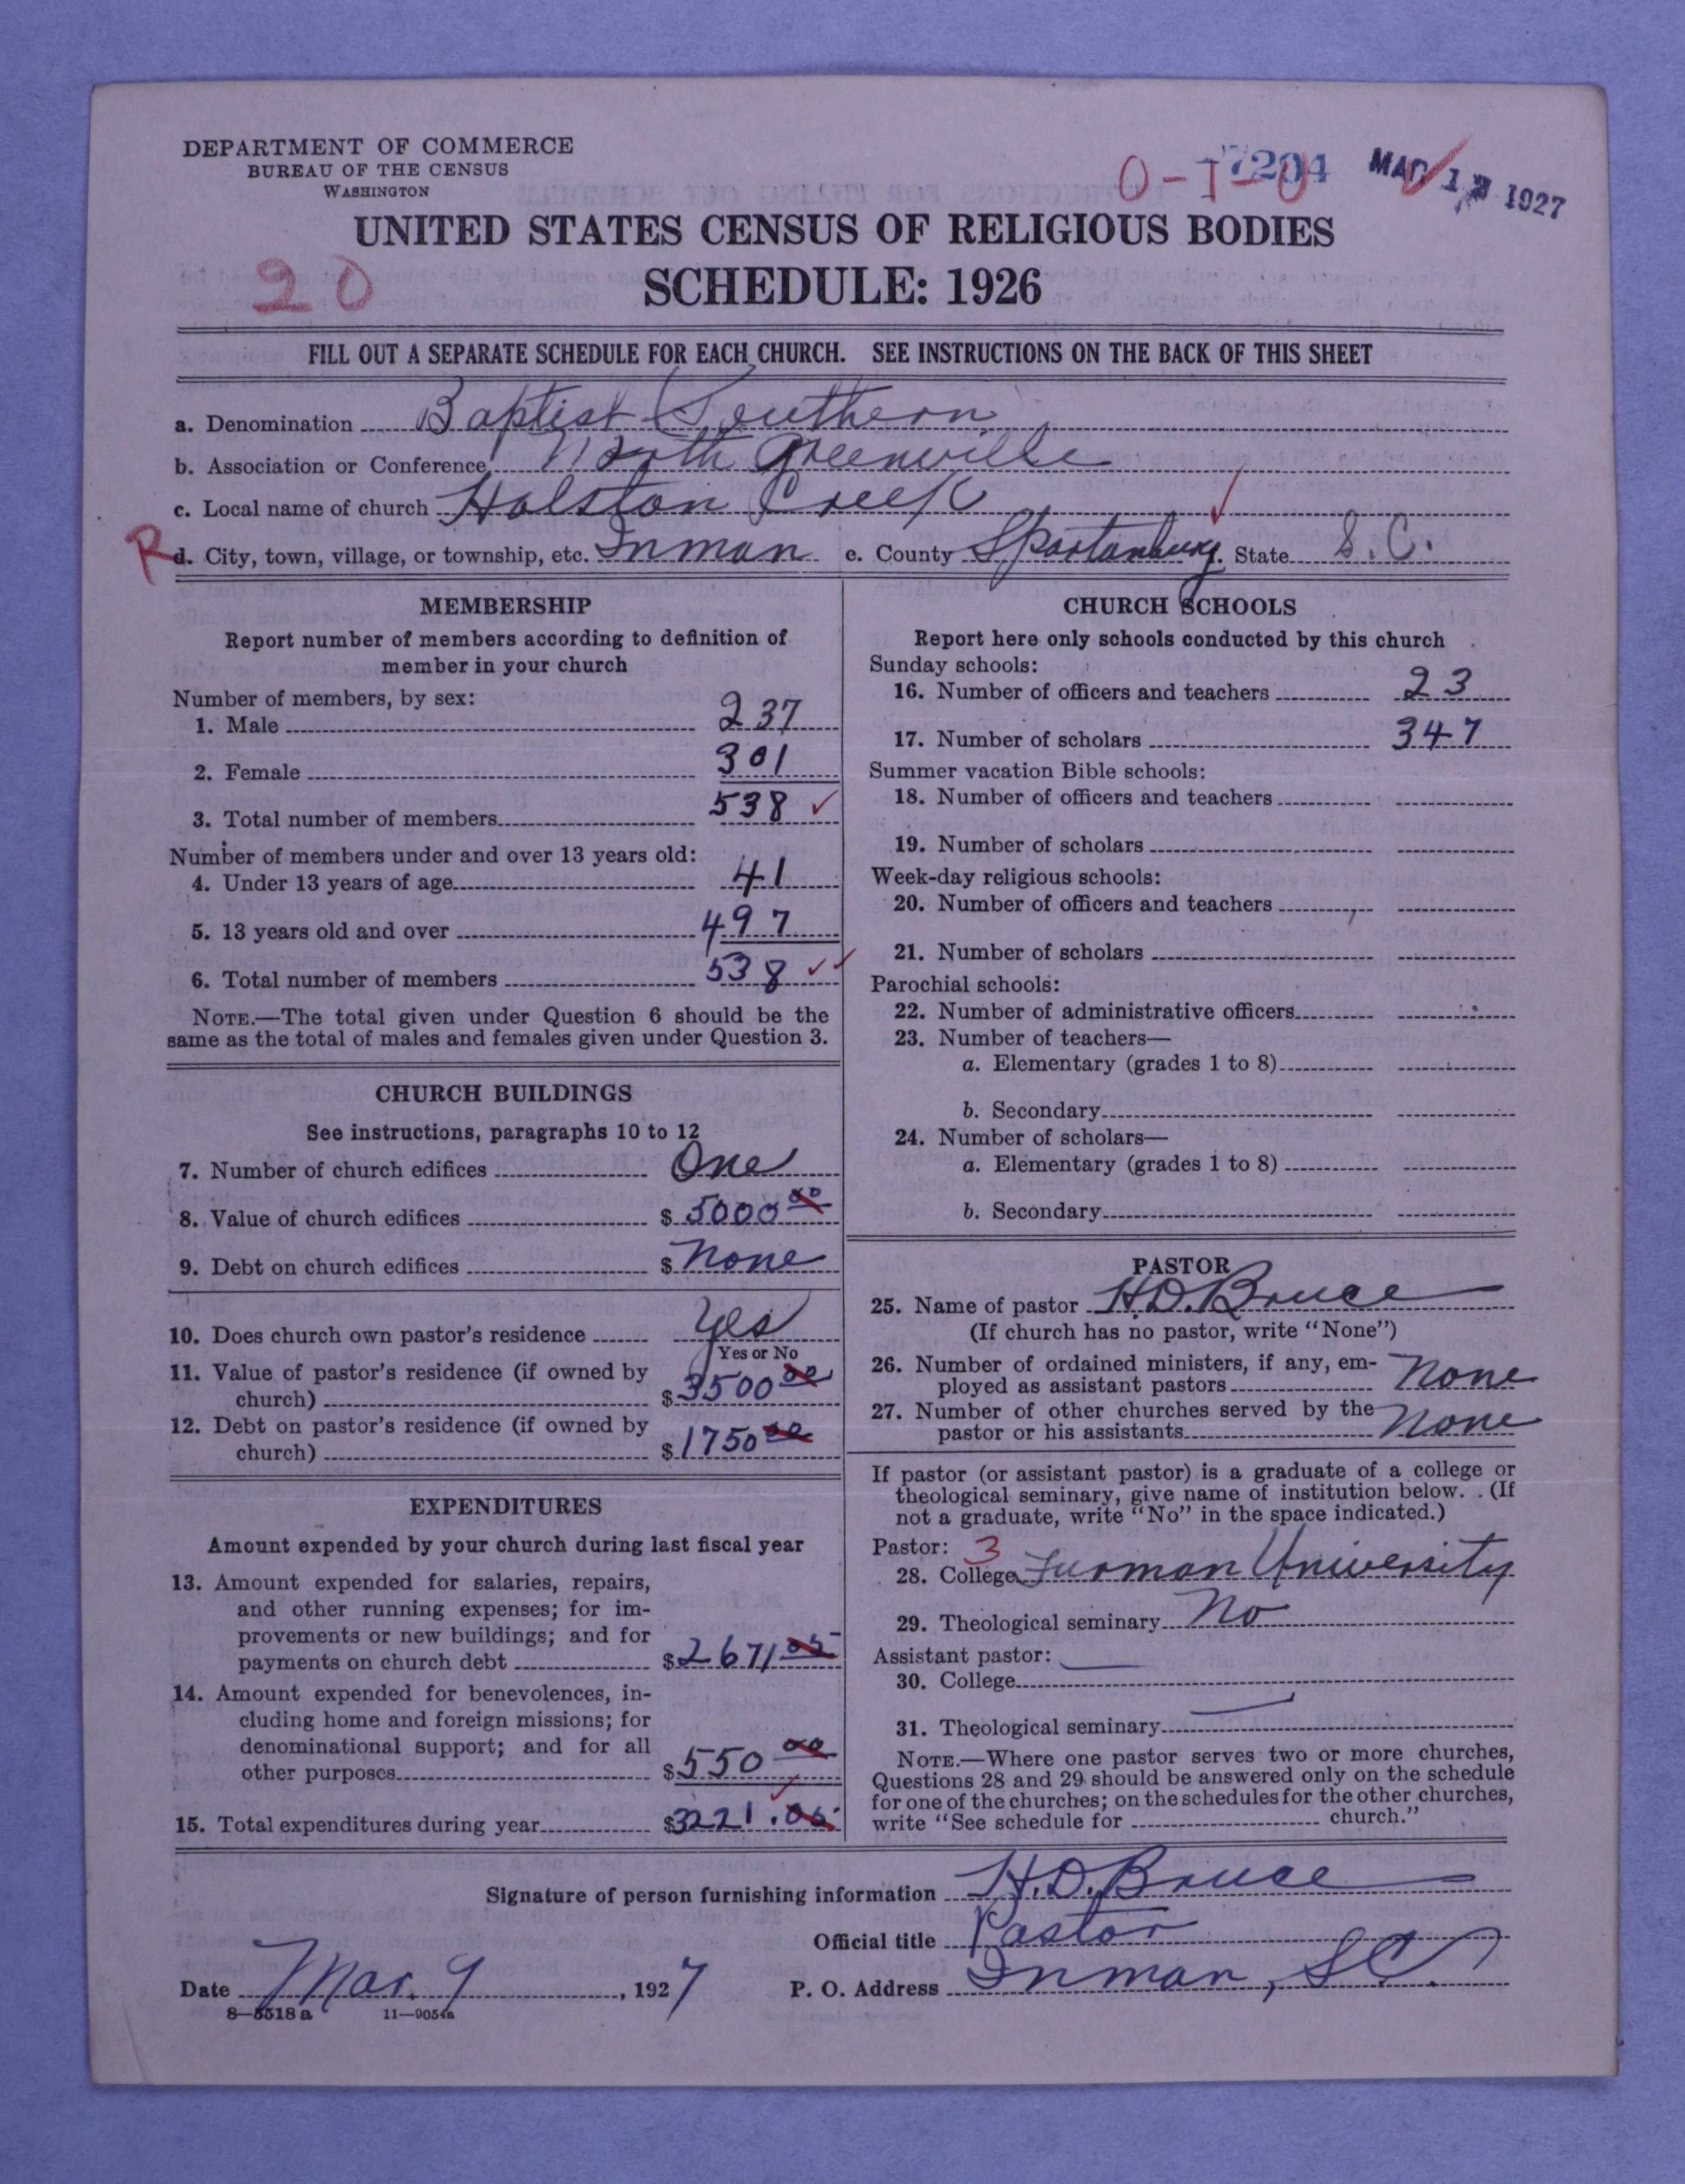 DEPARTMENT OF COMMERCE
BUREAU OF THE CENSUS
WASHINGTON
0-1-0 7204 MAR 12 1927
UNITED STATES CENSUS OF RELIGIOUS BODIES
20
SCHEDULE: 1926
FILL OUT A SEPARATE SCHEDULE FOR EACH CHURCH. SEE INSTRUCTIONS ON THE BACK OF THIS SHEET
a. Denomination Baptist Southern
b. Association or Conference North Greenville
c. Local name of church Holston Creek
R d. City, town, village, or township, etc. Inman e. County Spartanburg. State S.C.
MEMBERSHIP
Report number of members according to definition of
member in your church
Number of members, by sex:
1. Male 237
2. Female 301
3. Total number of members 538
Number of members under and over 13 years old:
4. Under 13 years of age 41
5. 13 years old and over 497
6. Total number of members 538
NOTE.—The total given under Question 6 should be the
same as the total of males and females given under Question 3.
CHURCH BUILDINGS
See instructions, paragraphs 10 to 12
7. Number of church edifices One
8. Value of church edifices $ 5000 00
9. Debt on church edifices $ None
10. Does church own pastor's residence Yes
Yes or No
11. Value of pastor's residence (if owned by
church) $ 3500 00
12. Debt on pastor's residence (if owned by
church) $ 1750 00
EXPENDITURES
Amount expended by your church during last fiscal year
13. Amount expended for salaries, repairs,
and other running expenses; for im-
provements or new buildings; and for
payments on church debt $ 2671 05
14. Amount expended for benevolences, in-
cluding home and foreign missions; for
denominational support; and for all
other purposes $ 550 00
15. Total expenditures during year $ 3221.05
CHURCH SCHOOLS
Report here only schools conducted by this church
Sunday schools:
16. Number of officers and teachers 23
17. Number of scholars 347
Summer vacation Bible schools:
18. Number of officers and teachers
19. Number of scholars
Week-day religious schools:
20. Number of officers and teachers
21. Number of scholars
Parochial schools:
22. Number of administrative officers
23. Number of teachers—
a. Elementary (grades 1 to 8)
b. Secondary
24. Number of scholars—
a. Elementary (grades 1 to 8)
b. Secondary
PASTOR
25. Name of pastor H.D. Bruce
(If church has no pastor, write "None")
26. Number of ordained ministers, if any, em-
ployed as assistant pastors None
27. Number of other churches served by the
pastor or his assistants None
If pastor (or assistant pastor) is a graduate of a college or
theological seminary, give name of institution below. (If
not a graduate, write "No" in the space indicated.)
Pastor: 3
28. College Furman University
29. Theological seminary No
Assistant pastor:
30. College
31. Theological seminary
NOTE.—Where one pastor serves two or more churches,
Questions 28 and 29 should be answered only on the schedule
for one of the churches; on the schedules for the other churches,
write "See schedule for church."
Signature of person furnishing information H.D. Bruce
Official title Pastor
Date Mar. 9, 1927 P. O. Address Inman, S.C.
8—5518 a 11—9054a